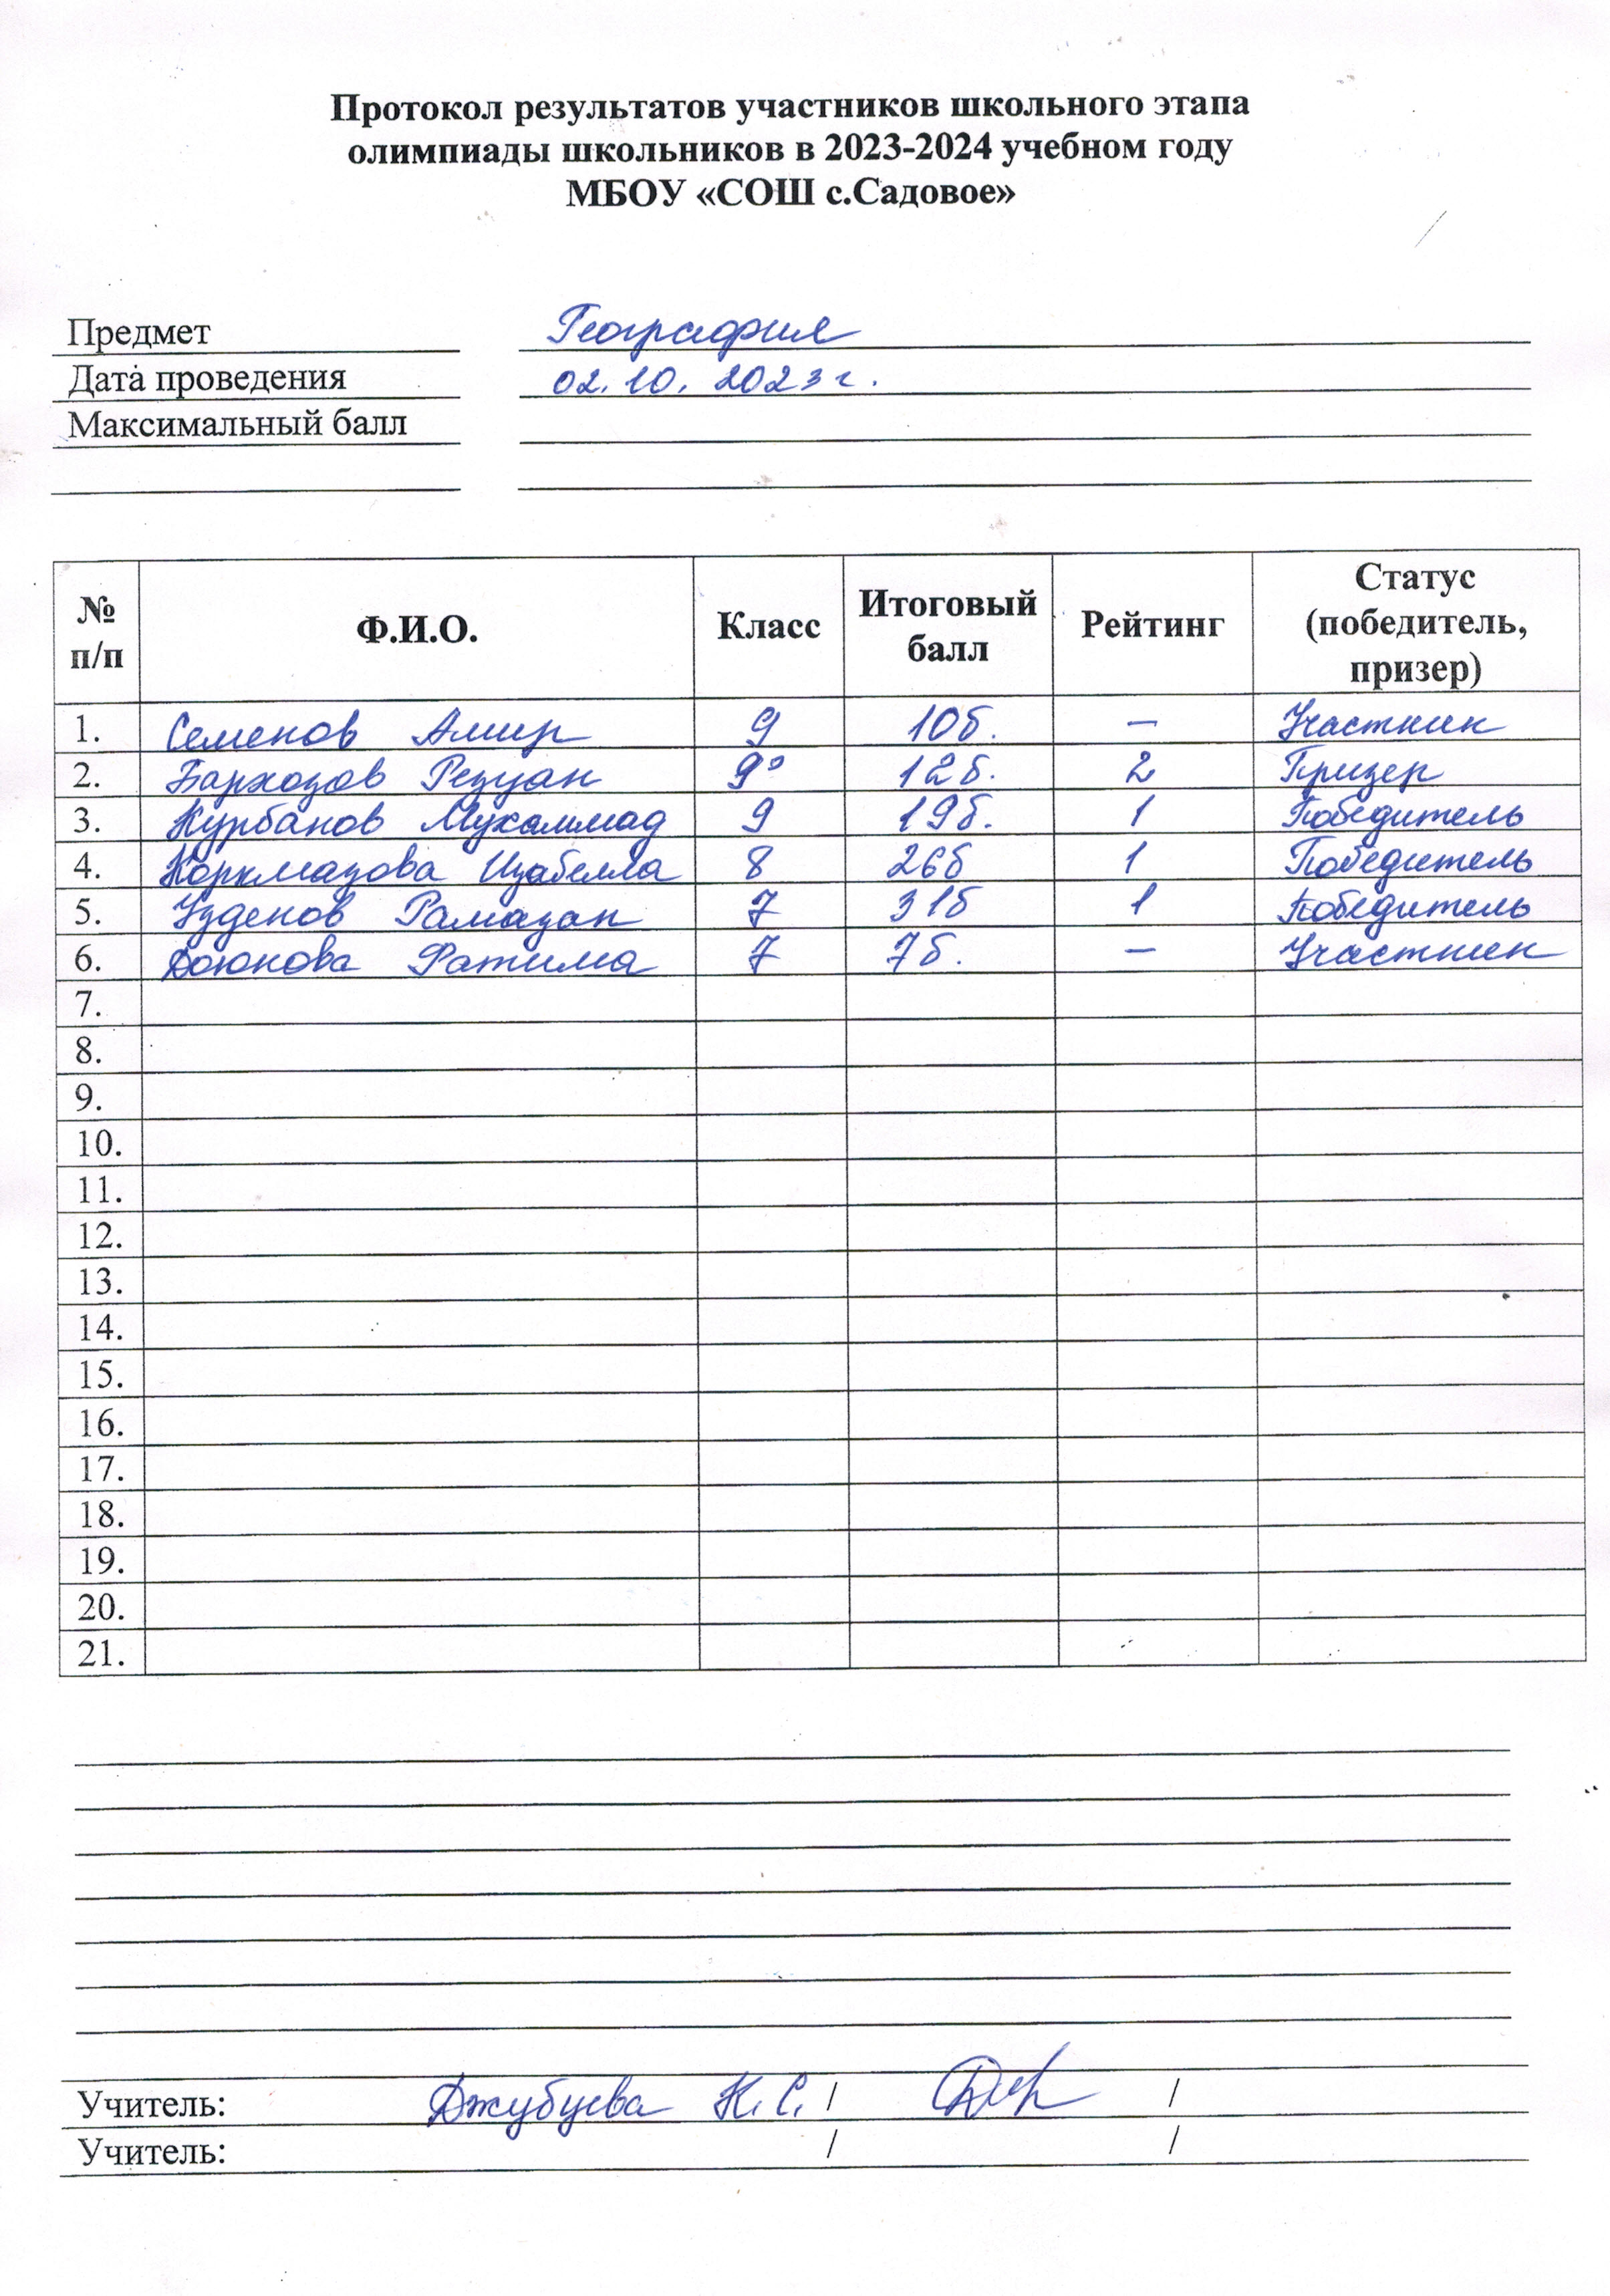 Протокол результатов участников школьного этапа
олимпиады школьников в 2023-2024 учебном году
МБОУ «СОШ с.Садовое»
Предмет География
Дата проведения 02.10.2023г.
Максимальный балл
№ п/п Ф.И.О. Класс Итоговый балл Рейтинг Статус (победитель, призер)
1. Семенов Амир 9 10б. – Участник
2. Бархозов Резуан 9 12б. 2 Призер
3. Курбанов Мухаммад 9 19б. 1 Победитель
4. Коркмазова Изабелла 8 26б 1 Победитель
5. Узденов Рамазан 7 31б 1 Победитель
6. Доюнова Фатима 7 7б. – Участник
7.
8.
9.
10.
11.
12.
13.
14.
15.
16.
17.
18.
19.
20.
21.
Учитель: Джубуева Н.С. / /
Учитель: / /